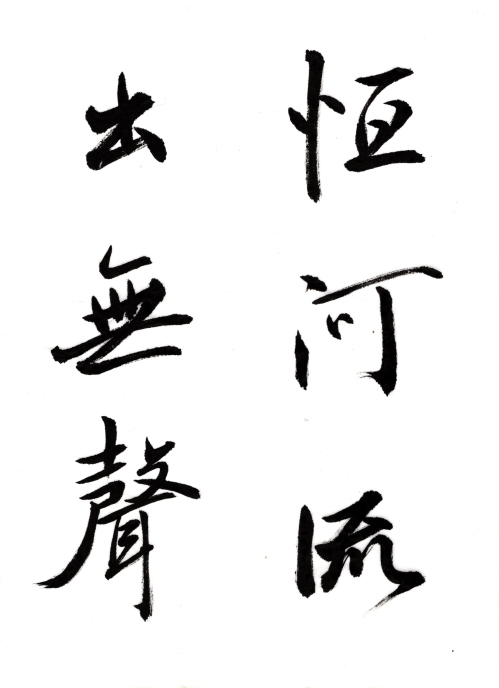 恒河流
出無聲